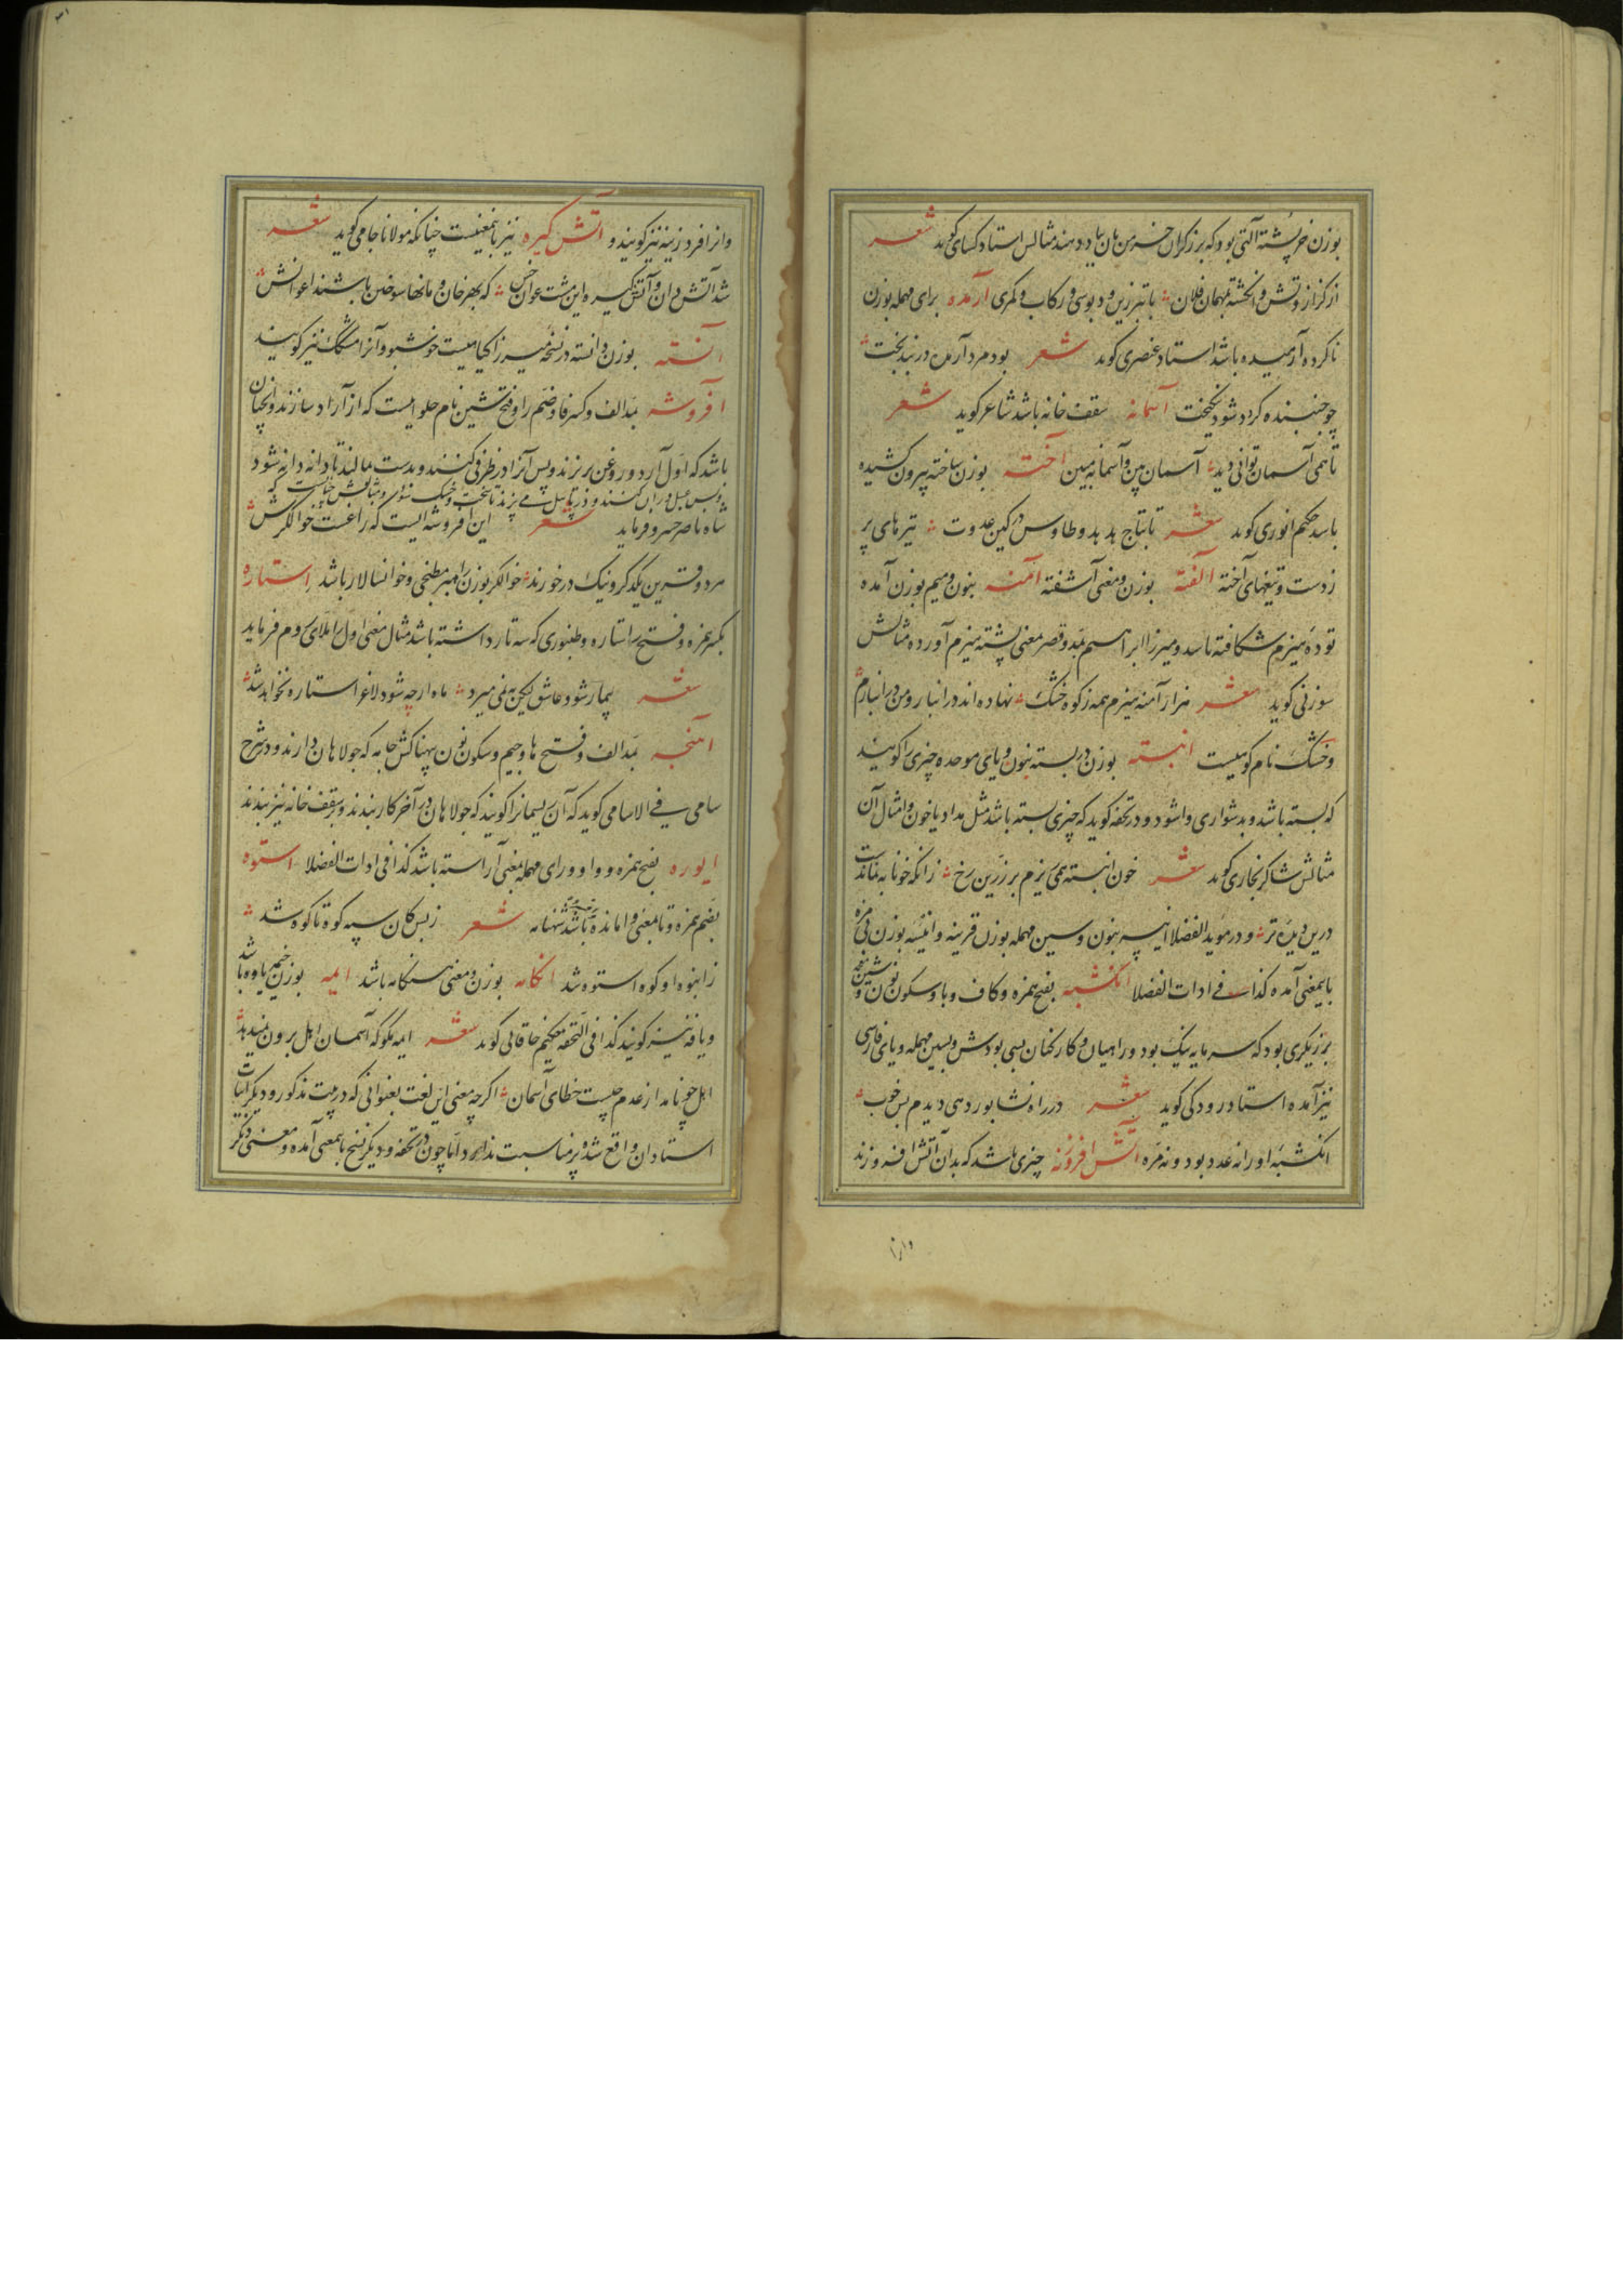 بوزن خرپشته آلتی بود که برزکران خرمن بان بباد دهند مثالش استاد کسای کوید شعر
از کزاز وتش و انکشته بهمان فلان با تبرزین و دبوسی و رکاب و کمری آرمده برای مهمله بوزن
ناکرده آرمیده باشد استاد عنصری کوید شعر بود مرد آرمده در بند بخت
چو جنبنده کردد شود نیکبخت آسمانه سقف خانه باشد شاعر کوید شعر
تا همی آسمان توانی دید آسمان بین و آسمانه مبین آخته بوزن ساخته بیرون کشیده
باشد حکیم انوری کوید شعر تا بتاج هدهد و طاوس در کین عدوت تیرهای پر
زدست و تیغهای آخته آلفته بوزن و معنی آشفته آمنه بنون و میم بوزن آمده
توده هیزم شکافته باشد و میرزا ابراهیم بمد و قصر بمعنی پشته هیزم آورده مثالش
سوزنی کوید شعر هزار آمنه هیزم همه زکوه خشک نهاده اند در انبار و من در انبازم
وخشک نام کوهیست انبسته بوزن دربسته بنون و بای موحده چیزی را کویند
که بسته باشد و بدشواری واشود و در تحفه کوید که چیزی بسته باشد مثل مداد یا خون و امثال آن
مثالش شاکر بخاری کوید شعر خون انبسته همی ریزم بر زرین رخ زانکه خونابه نماندست
درین دیده تر و در موید الفضلا انیسه بنون و سین مهمله بوزن قرینه و انیسه بوزن بی مزه
باینمعنی آمده کذا فی ادات الفضلا انکشبه بفتح همزه و کاف و با و سکون نون و شین معجمه
برزیکری بود که سرمایه نیک بود و راهیان و کارکنان بسی بودش و بسین مهمله و بای فارسی
نیز آمده استاد رودکی کوید شعر در راه نشابور دهی دیدم بس خوب
انکشبه اورانه عدد بود و نه مره آتش افروزنه چیزی باشد که بدان آتش افروزند
وانرا
وانرا فروزینه نیز کویند و آتش کیره نیز باینمعنیست چنانکه مولانا جامی کوید شعر
شد آتش دان و آتش کیره این مشت عوان خس که بهر خان و مانها سوختن باشند اعوانش
آنسته بوزن دانسته در نسخه میرزا کیاهیست خوشبو و آنرا مشک نیز کویند
آفروشه بمد الف و کسر فا و ضم را و فتح شین نام حلواییست که از آرد سازند و آنچنان
باشد که اول آرد و روغن بریزند و پس آنرا در ظرفی کنند و بدست مالند تا دانه دانه شود
شاه ناصر خسرو فرماید شعر این افروشه ایست که زاغست خوالکرش
هر دو قرین یکدکر و نیک در خورند خوالکر بوزن رامبر مطبخی و خوانسالار باشد استاره
بکسر همزه و فتح را ستاره و طنبوری که سه تار داشته باشد مثال معنی اول را ملای روم فرماید
شعر بیمار شود عاشق لیکن به نمی میرد ماه ارچه شود لاغر استاره نخواهد شد
آهنجه بمد الف و فتح ها و جیم و سکون نون پهناکش جامه که جولاهان دارند و در شرح
سامی فی الاسامی کوید که آن ریسمانرا کویند که جولاهان در آخر کار بندند و بر سقف خانه نیز بندند
ایوره بفتح همزه و واو و رای مهمله بمعنی آراسته باشد کذا فی ادات الفضلا استوه
بضم همزه و تا بمعنی وامانده باشد شهنامه شعر زبس کان سپه کوه تا کوه شد
زانبوه او کوه استوه شد انکامه بوزن و معنی هنکامه باشد ایمه بوزن خیمه یاوه باشد
و یافه نیز کویند کذا فی التحفه حکیم خاقانی کوید شعر ایمه مکو که آسمان اهل برون نمیدهد
اهل چو نامد از عدم چیست خطای آسمان اکرچه معنی این لغت بعنوانی که در بیت مذکور و دیکر ابیات
استادان واقع شده پر مناسبت ندارد اما چون در تحفه و دیکر نسخ باینمعنی آمده و معنی دیکر